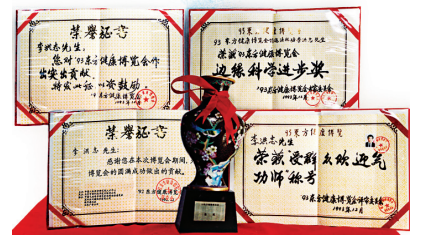 荣誉证书
李洪志先生:
您对'93东方健康博览会作
出突出贡献,
特发此证以资鼓励
'93东方健康博览会
1993年12月
93东方健康博览会
李洪志先生
荣获'93东方健康博览会
边缘科学进步奖
'93东方健康博览会评审委员会
1993年12月
荣誉证书
李洪志先生:
感谢您在本次博览会期间,
博览会的圆满成功做出的贡献。
'93东方健康博览会
93东方健康博览
李洪志先生
荣获"受群众欢迎气
功师"称号
'93东方健康博览会评审委员会
1993年12月